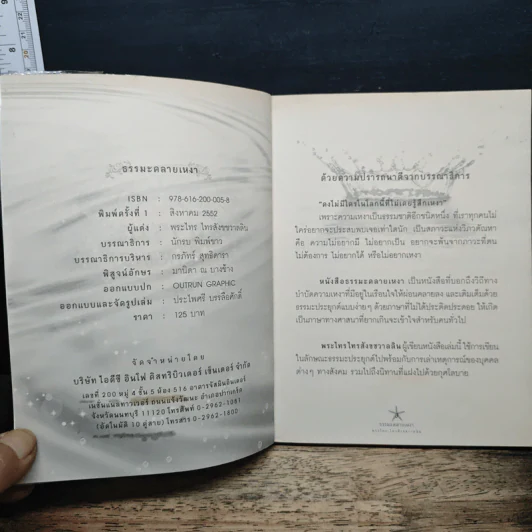 ธรรมะคลายเหงา
ISBN : 978-616-200-005-8
พิมพ์ครั้งที่ 1 : สิงหาคม 2552
ผู้แต่ง : พระไทร ไทรสังขชวาลลิน
บรรณาธิการ : นักรบ พิมพ์ขาว
บรรณาธิการบริหาร : กรภัทร์ สุทธิดารา
พิสูจน์อักษร : มาปิตา ณ บางช้าง
ออกแบบปก : OUTRUN GRAPHiC
ออกแบบและจัดรูปเล่ม : ประไพศรี บรรลือศักดิ์
ราคา : 125 บาท
จัดจำหน่ายโดย
บริษัท ไอดีซี อินโฟ ดิสทริบิวเตอร์ เซ็นเตอร์ จำกัด
เลขที่ 200 หมู่ 4 ชั้น 5 ห้อง 516 อาคารจัสมินอินเตอร์
เนชั่นแนลทาวเวอร์ ถนนแจ้งวัฒนะ อำเภอปากเกร็ด
จังหวัดนนทบุรี 11120 โทรศัพท์ 0-2962-1081
(อัตโนมัติ 10 คู่สาย) โทรสาร 0-2962-1800
ด้วยความปรารถนาดีจากบรรณาธิการ
"คงไม่มีใครในโลกนี้ที่ไม่เคยรู้สึกเหงา"
เพราะความเหงาเป็นธรรมชาติอีกชนิดหนึ่ง ที่เราทุกคนไม่
ใคร่อยากจะประสบพบเจอเท่าใดนัก เป็นสภาวะแห่งวิภวตัณหา
คือ ความไม่อยากมี ไม่อยากเป็น อยากจะพ้นจากภาวะที่ตน
ไม่ต้องการ ไม่อยากได้ หรือไม่อยากเหงา
หนังสือธรรมะคลายเหงา เป็นหนังสือที่บอกถึงวิถีทาง
บำบัดความเหงาที่มีอยู่ในเรือนใจให้ผ่อนคลายลง และเติมเต็มด้วย
ธรรมะประยุกต์แบบง่ายๆ ด้วยภาษาที่ไม่ได้ประดิดประดอย ให้เกิด
เป็นภาษาทางศาสนาที่ยากเกินจะเข้าใจสำหรับคนทั่วไป
พระไทรไทรสังขชวาลลิน ผู้เขียนหนังสือเล่มนี้ ใช้การเขียน
ในลักษณะธรรมะประยุกต์ไปพร้อมกับการเล่าเหตุการณ์ของบุคคล
ต่างๆ ทางสังคม รวมไปถึงนิทานที่แฝงไปด้วยกุศโลบาย